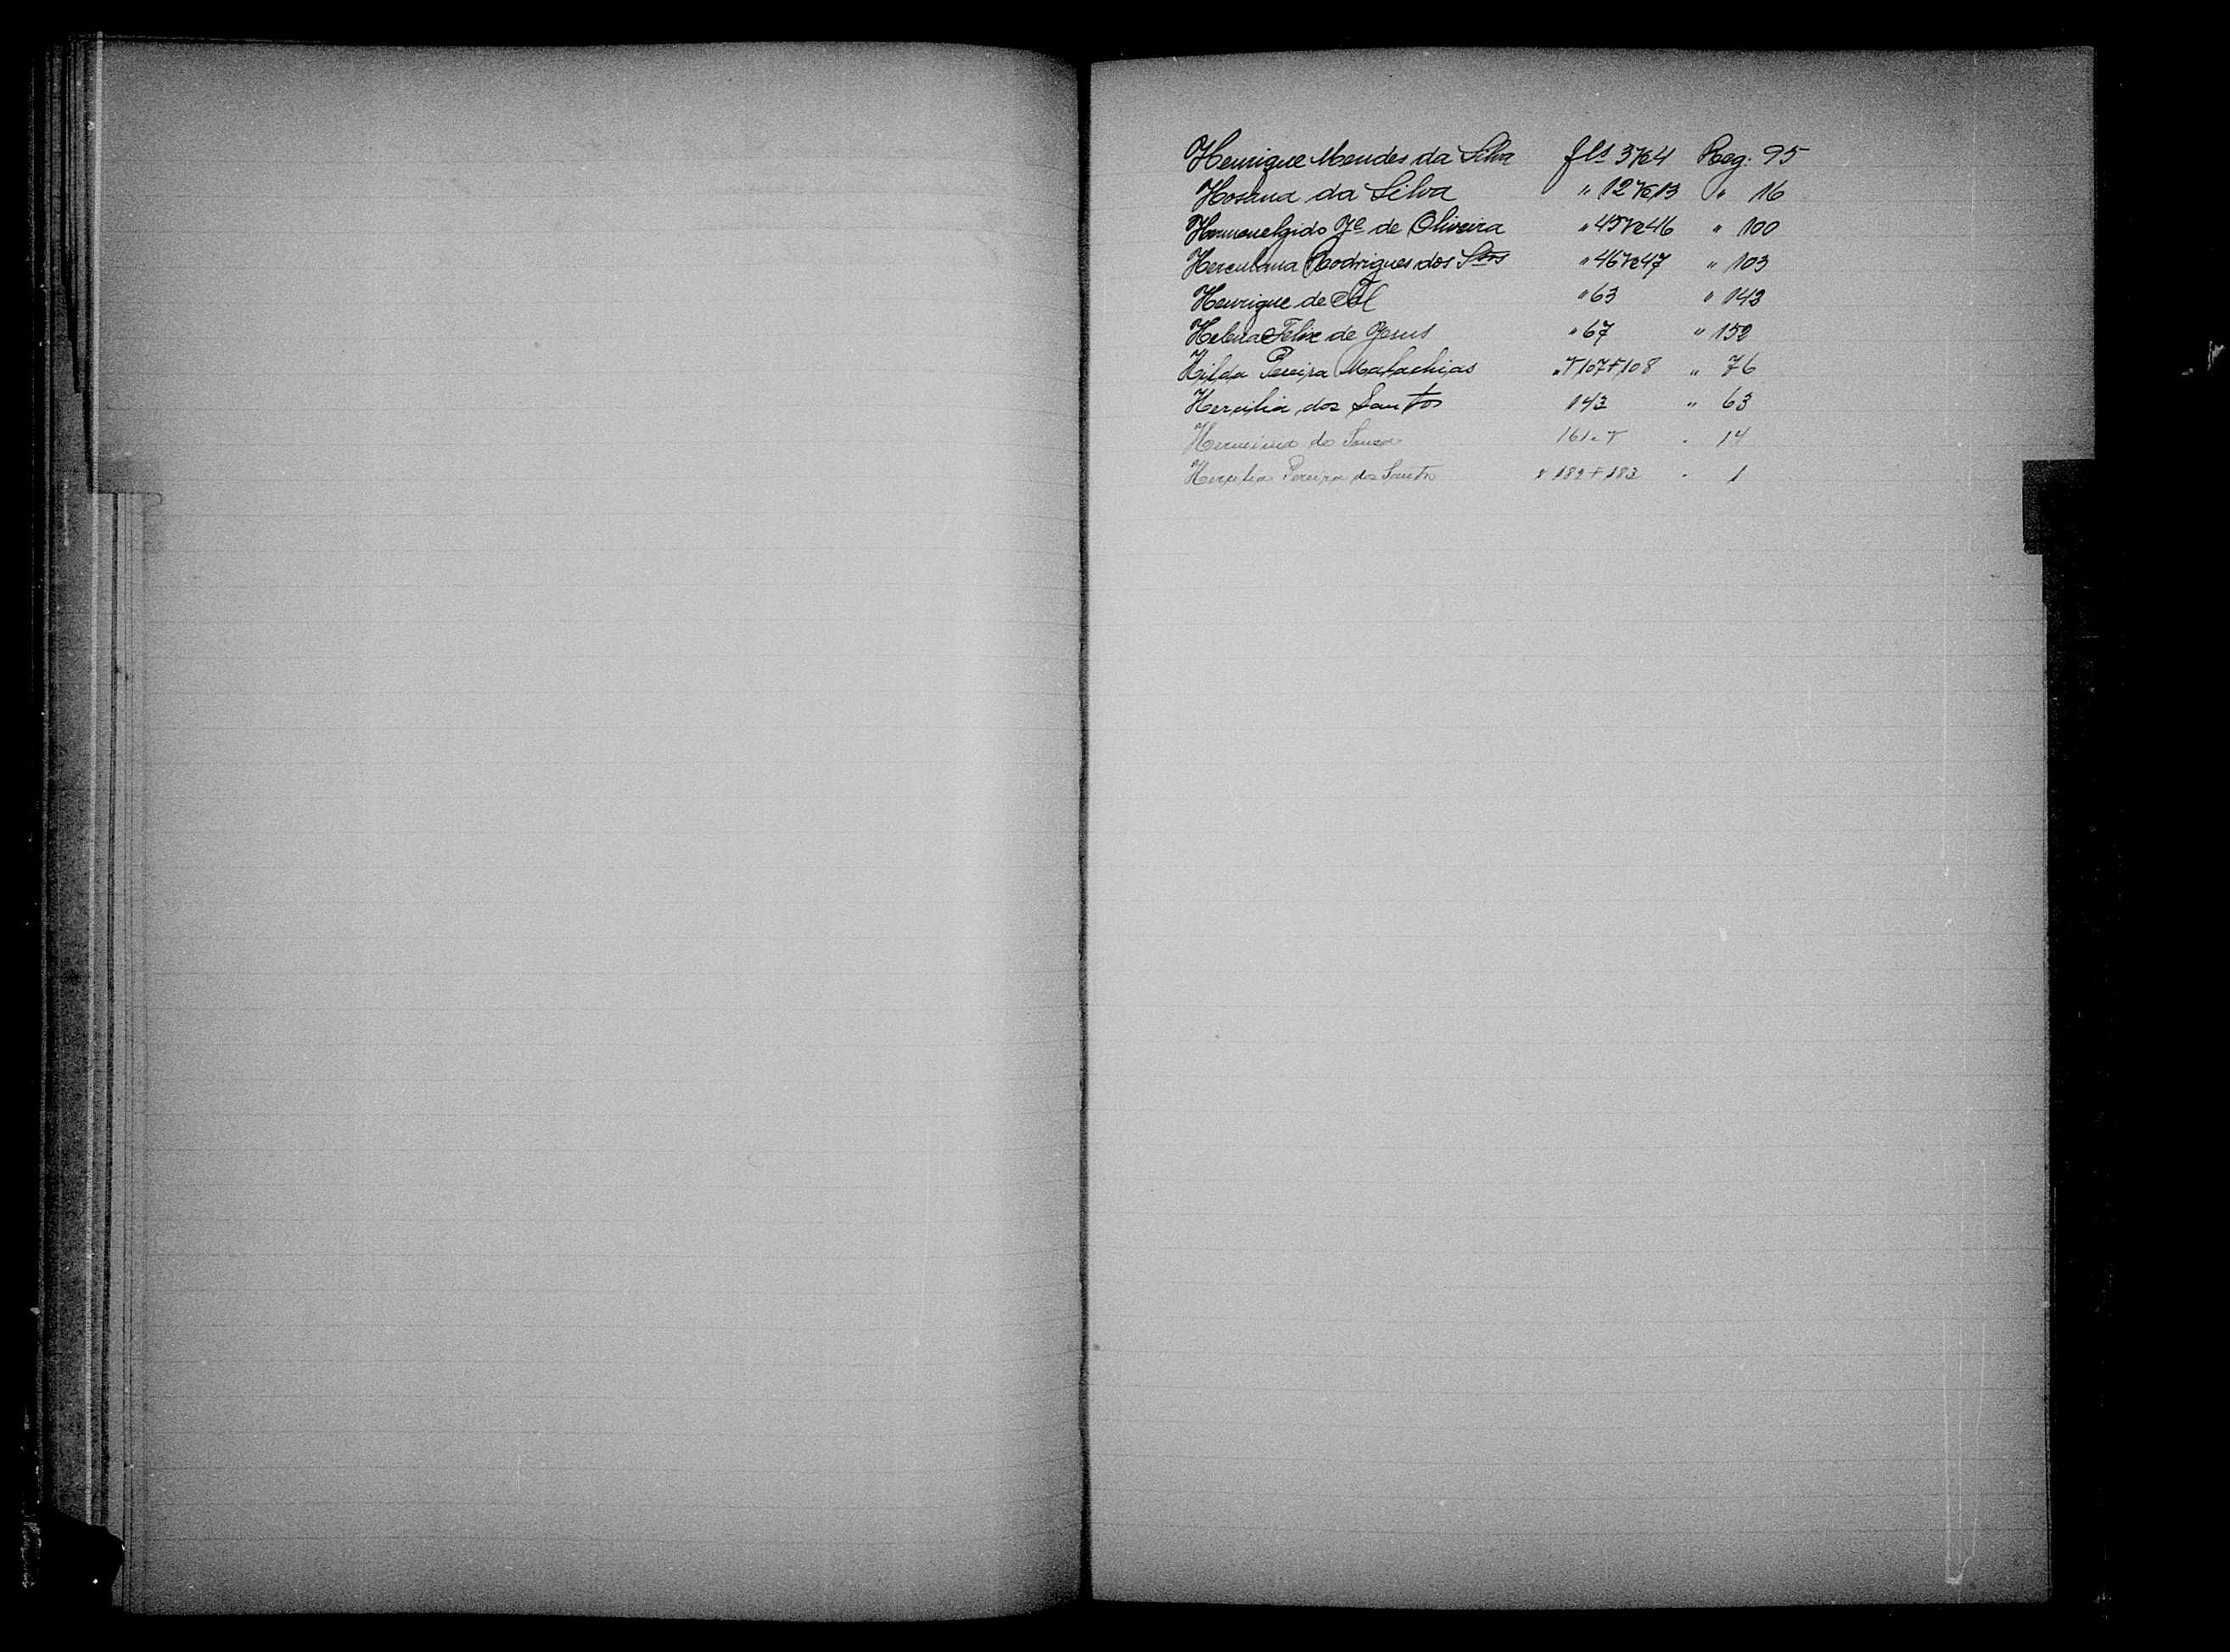 Henrique Mendes da Silva fls 3 Ve 4 Reg: 95
Hosana da Silva " 12 Ve 13 " 16
Hermenelgido Je de Oliveira " 45 Ve 46 " 100
Herculana Rodrigues dos Stos " 46 Ve 47 " 103
Henrique de Tal " 63 " 143
Helena Felix de Jesus " 67 " 152
Hilda Pereira Malachias " V 107 + 108 " 76
Hercilia dos Santos 143 " 63
Herminia de Souza 161 . V . 14
Hercilia Pereira dos Santos 182 + 183 . 1